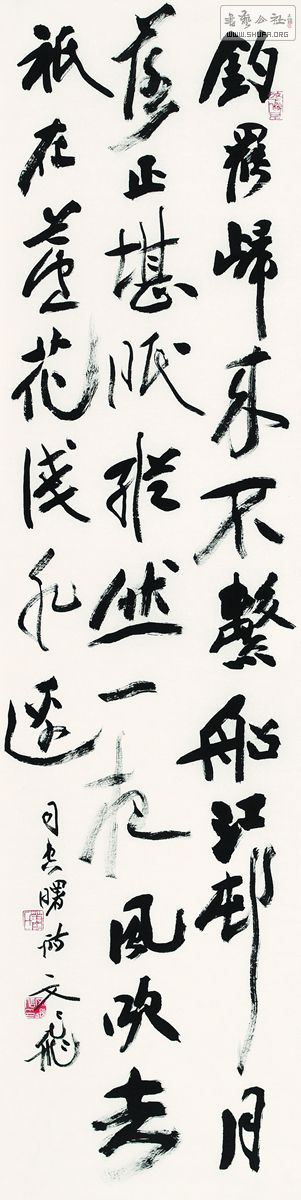 钓罢歸来不繫船江邨月
落正堪眠縱然一夜風吹去
祇在蘆花淺水邊
司空曙詩 文飛
WWW.SHUFA.ORG